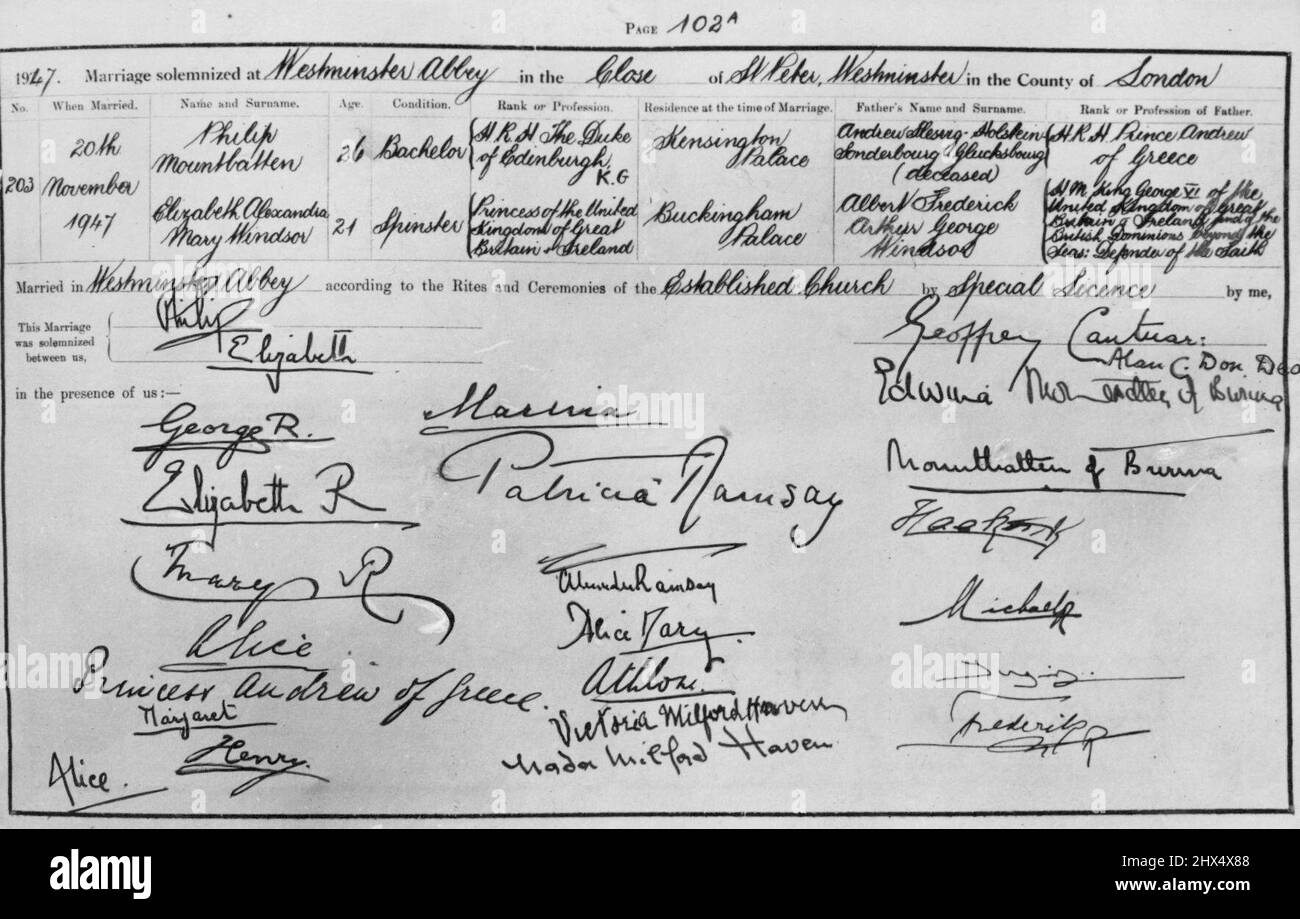 PAGE 102A
1947. Marriage solemnized at Westminster Abbey in the Close of St Peter, Westminster in the County of London
No. When Married. Name and Surname. Age. Condition. Rank or Profession. Residence at the time of Marriage. Father's Name and Surname. Rank or Profession of Father.
203
20th
November
1947
Philip
Mountbatten
26
Bachelor
H R H The Duke
of Edinburgh
K.G
Kensington
Palace
Andrew Slesvig-Holstein
Sonderbourg-Glucksbourg
(deceased)
H R H Prince Andrew
of Greece
Elizabeth Alexandra
Mary Windsor
21
Spinster
Princess of the United
Kingdom of Great
Britain & Ireland
Buckingham
Palace
Albert Frederick
Arthur George
Windsor
H M King George VI of the
United Kingdom of Great
Britain & Ireland and of the
British Dominions beyond the
Seas: Defender of the Faith
Married in Westminster Abbey according to the Rites and Ceremonies of the Established Church by Special Licence by me,
This Marriage
was solemnized
between us,
Philip
Elizabeth
Geoffrey Cantuar:
Alan C. Don. Dea
in the presence of us :—
George R.
Elizabeth R
Mary R
Alice
Princess Andrew of Greece.
Margaret
Henry.
Alice.
Marina
Patricia Ramsay
Ramsay
Alice Mary.
Athlone.
Victoria Milford Haven
Nada Milford Haven
Edwina Mountbatten of Burma
Mountbatten of Burma
Haakon R
Michael R
Frederik R
alamy
Image ID: 2HX4X88
www.alamy.com